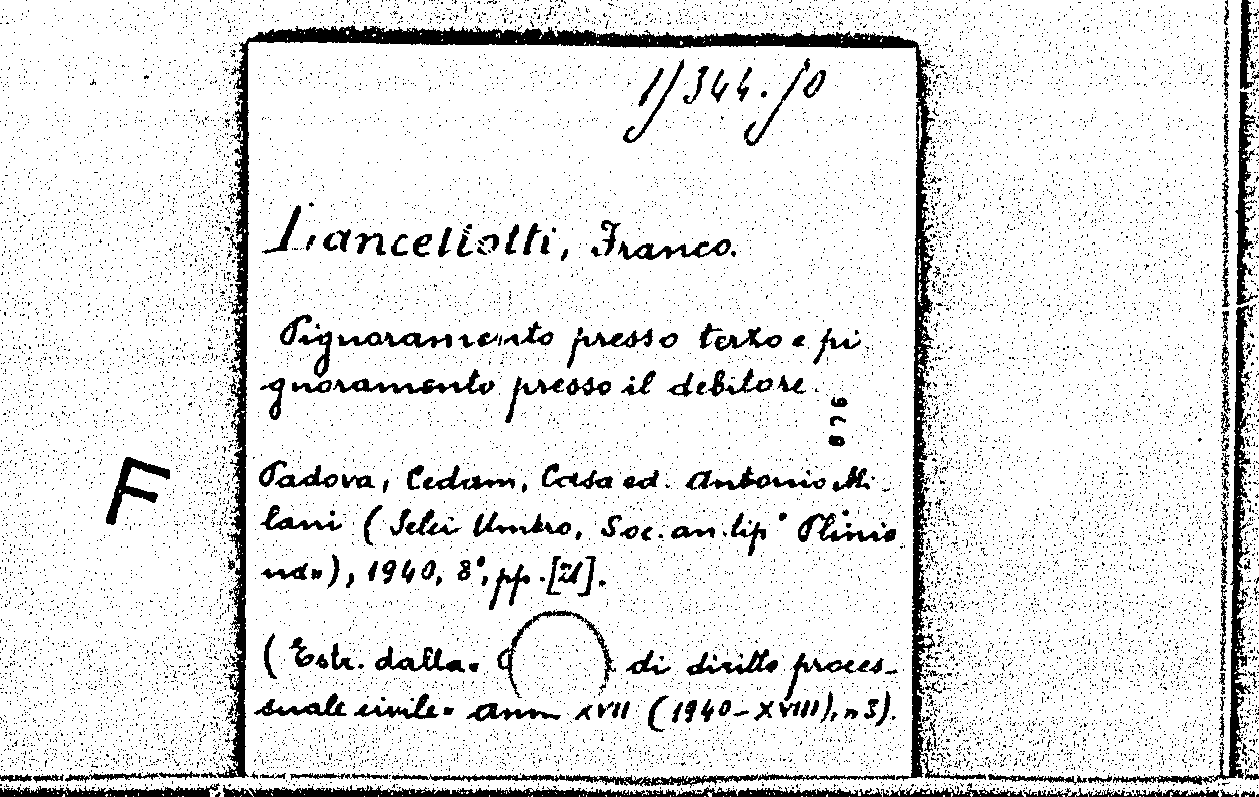 1/344.10
Lancellotti, Franco.
Pignoramento presso terzo e pi
gnoramento presso il debitore.
876
Padova, Cedam, Casa ed. Antonio Mi-
lani ( Selci Umbro, Soc. an. tip° Plinia
na»), 1940, 8°, pp. [21].
F
( Estr. dalla « di diritto proces-
suale civile» ann XVII (1940-XVIII), n 3).